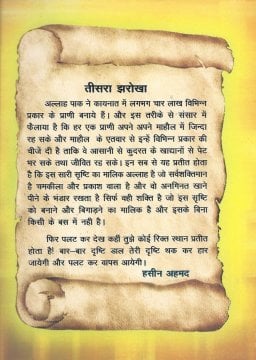 तीसरा झरोखा
अल्लाह पाक ने कायनात में लगमग चार लाख विभिन्न
प्रकार के प्राणी बनाये हैं। और इस तरीके से संसार में
फैलाया है कि हर एक प्राणी अपने अपने माहौल में जिन्दा
रह सके और माहौल के एतवार से इन्हे विभिन्न प्रकार की
चीजें दी है ताकि वे आसानी से कुदरत के खाद्यानों से पेट
भर सके तथा जीवित रह सके। इन सब से यह प्रतीत होता
है कि इस सारी सृष्टि का मालिक अल्लाह है जो सर्वशक्तिमान
है चमकीला और प्रकाश वाला है और वो अनगिनत खाने
पीने के भंडार रखता है सिर्फ वही शक्ति है जो इस सृष्टि
को बनाने और बिगाड़ने का मालिक है और इसके बिना
किसी के बस में नही है।
फिर पलट कर देख कहीं तुझे कोई रिक्त स्थान प्रतीत
होता है! बार–बार दृष्टि डाल तेरी दृष्टि थक कर हार
जायेगी और पलट कर वापस आयेगी।
हसीन अहमद